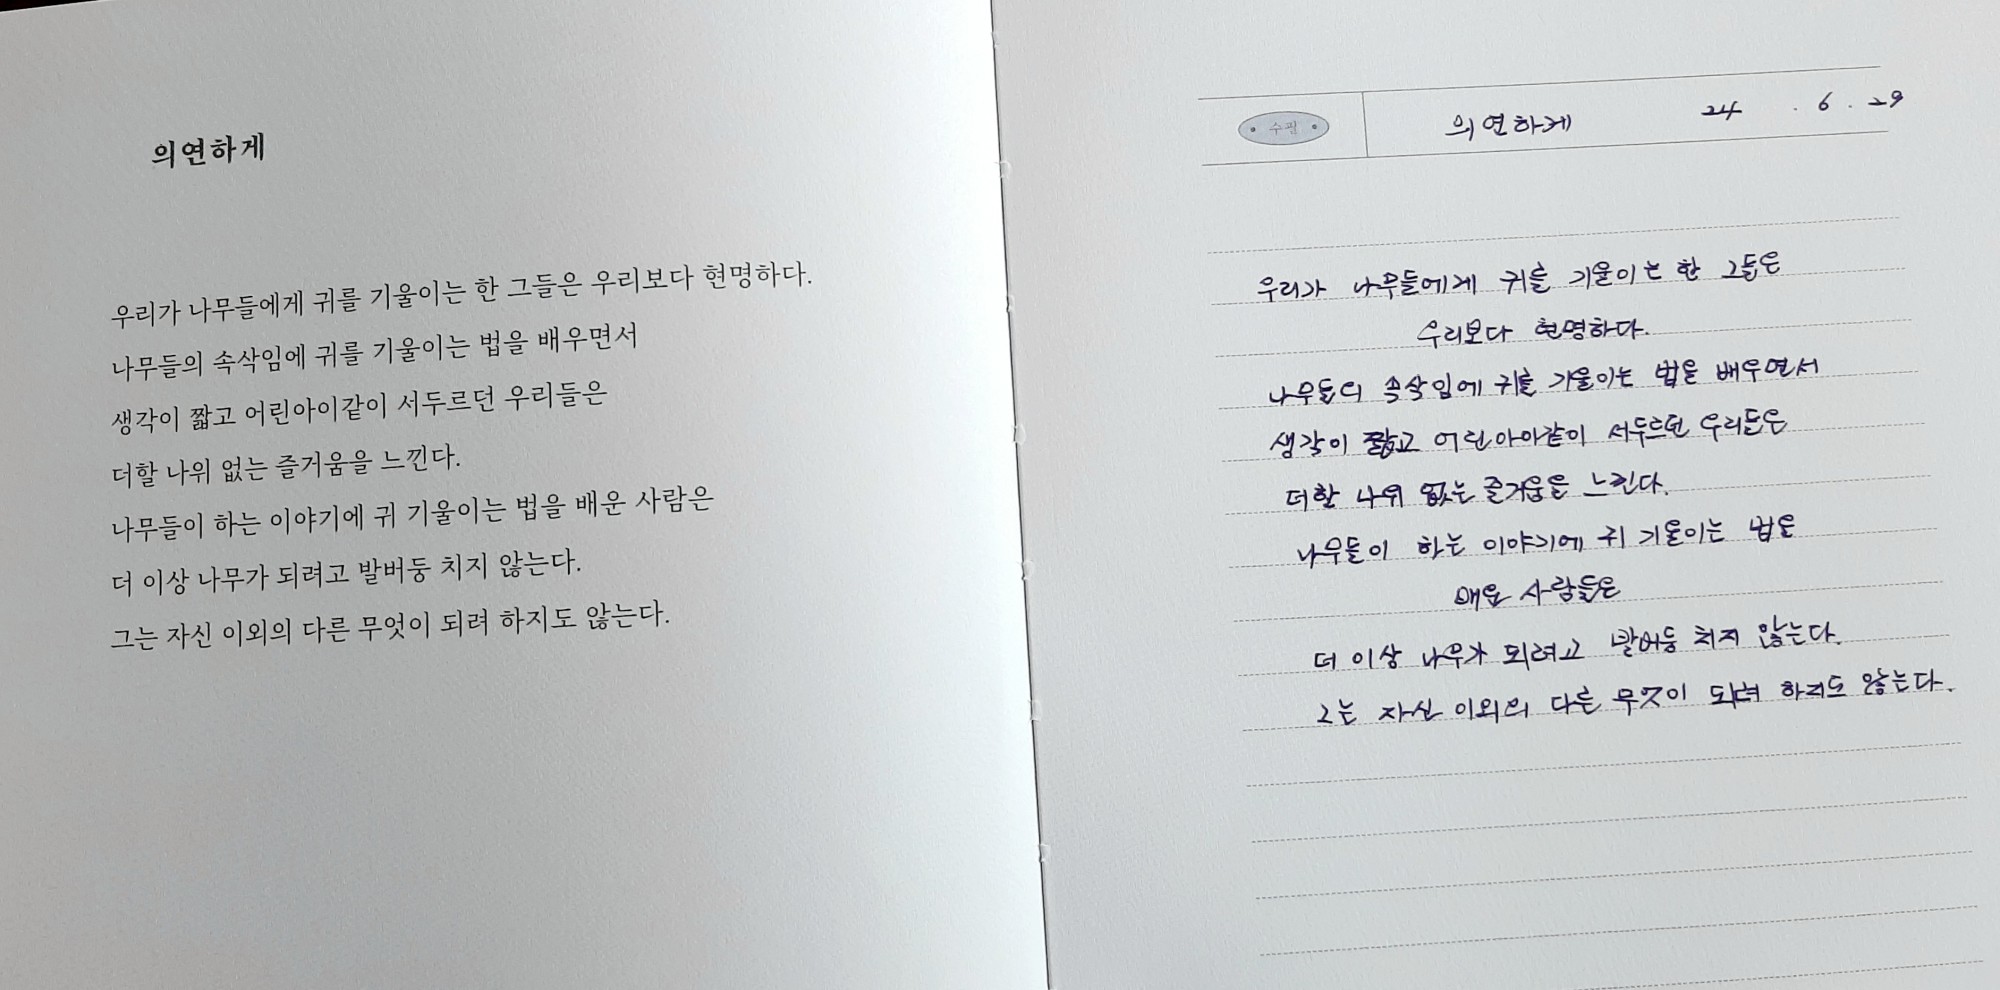 의연하게
우리가 나무들에게 귀를 기울이는 한 그들은 우리보다 현명하다.
나무들의 속삭임에 귀를 기울이는 법을 배우면서
생각이 짧고 어린아이같이 서두르던 우리들은
더할 나위 없는 즐거움을 느낀다.
나무들이 하는 이야기에 귀 기울이는 법을 배운 사람은
더 이상 나무가 되려고 발버둥 치지 않는다.
그는 자신 이외의 다른 무엇이 되려 하지도 않는다.
수필
의연하게 24 . 6 . 29
우리가 나무들에게 귀를 기울이는 한 그들은
우리보다 현명하다.
나무들의 속삭임에 귀를 기울이는 법을 배우면서
생각이 짧고 어린아이같이 서두르던 우리들은
더할 나위 없는 즐거움을 느낀다.
나무들이 하는 이야기에 귀 기울이는 법을
배운 사람들은
더 이상 나무가 되려고 발버둥 치지 않는다.
그는 자신 이외의 다른 무엇이 되려 하지도 않는다.